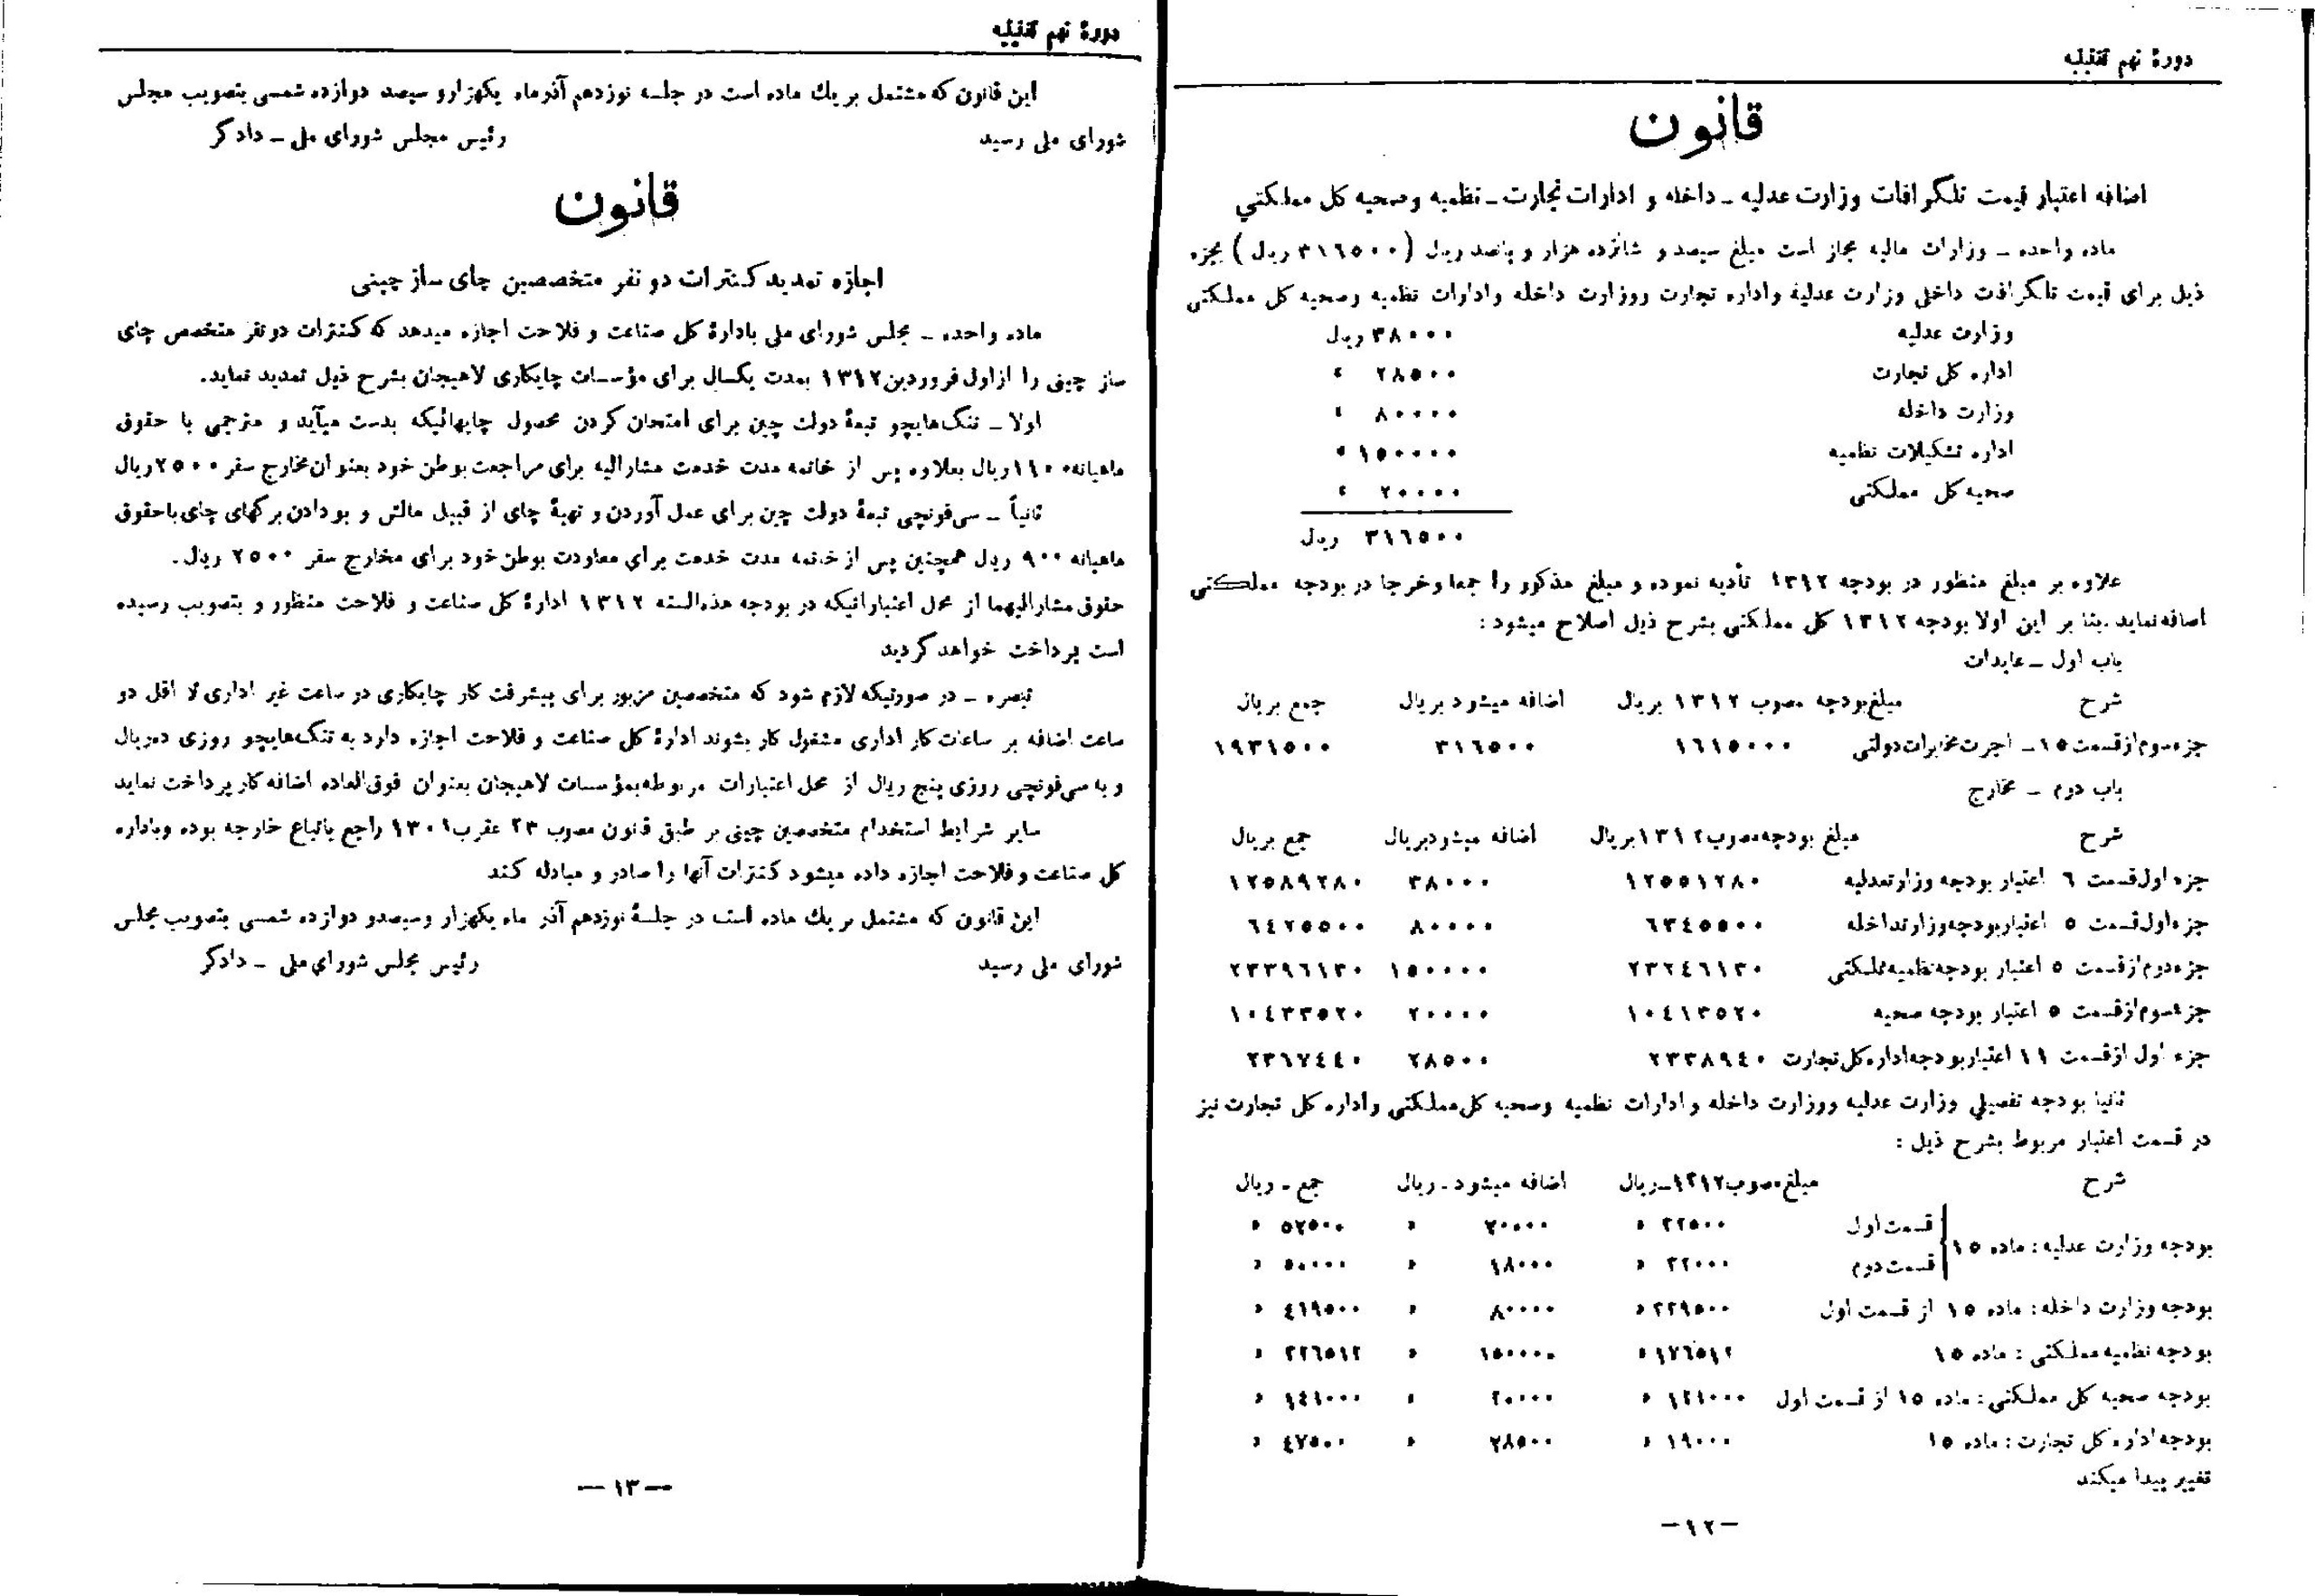 دورهٔ نهم تقنینیه
قانون
اضافه اعتبار قیمت تلگرافات وزارت عدلیه ـ داخله و ادارات تجارت ـ نظمیه و صحیه کل مملکتی
ماده واحده ـ وزارات مالیه مجاز است مبلغ سیصد و شانزده هزار و پانصد ریال (۳۱۶۵۰۰ ریال) بجزء
ذیل برای قیمت تلگرافات داخلی وزارت عدلیه و اداره تجارت ووزارت داخله وادارات نظمیه وصحیه کل مملکتی
وزارت عدلیه ۳۸۰۰۰ ریال
اداره کل تجارت ۲۸۵۰۰ »
وزارت داخله ۸۰۰۰۰ »
اداره تشکیلات نظمیه ۱۵۰۰۰۰ »
صحیه کل مملکتی ۲۰۰۰۰ »
۳۱۶۵۰۰ ریال
علاوه بر مبلغ منظور در بودجه ۱۳۱۲ تأدیه نموده و مبلغ مذکور را جمعا وخرجا در بودجه مملکتی
اضافه نماید . بنا بر این اولا بودجه ۱۳۱۲ کل مملکتی بشرح ذیل اصلاح میشود :
باب اول ـ عایدات
شرح مبلغ بودجه مصوب ۱۳۱۲ بریال اضافه میشود بریال جمع بریال
جزء سوم از قسمت ۱۵ ـ اجرت مخابرات دولتی ۱۶۱۵۰۰۰ ۳۱۶۵۰۰ ۱۹۳۱۵۰۰
باب دوم ـ مخارج
شرح مبلغ بودجه مصوب ۱۳۱۲ بریال اضافه میشود بریال جمع بریال
جزء اول قسمت ۶ اعتبار بودجه وزارتعدلیه ۱۲۵۵۱۲۸۰ ۳۸۰۰۰ ۱۲۵۸۹۲۸۰
جزء اول قسمت ۵ اعتبار بودجه وزارتداخله ۶۳۴۵۵۰۰ ۸۰۰۰۰ ۶۴۲۵۵۰۰
جزء دوم از قسمت ۵ اعتبار بودجه نظمیه مملکتی ۲۳۲۴۶۱۳۰ ۱۵۰۰۰۰ ۲۳۳۹۶۱۳۰
جزء سوم از قسمت ۵ اعتبار بودجه صحیه ۱۰۴۱۳۵۲۰ ۲۰۰۰۰ ۱۰۴۳۳۵۲۰
جزء اول از قسمت ۱۱ اعتبار بودجه اداره کل تجارت ۲۳۳۸۹۴۰ ۲۸۵۰۰ ۲۳۶۷۴۴۰
ثانیا بودجه تفصیلی وزارت عدلیه ووزارت داخله و ادارات نظمیه وصحیه کل مملکتی واداره کل تجارت نیز
در قسمت اعتبار مربوط بشرح ذیل :
شرح مبلغ مصوب ۱۳۱۲ ـ ریال اضافه میشود ـ ریال جمع ـ ریال
بودجه وزارت عدلیه : ماده ۱۵ قسمت اول ۳۲۵۰۰ » ۲۰۰۰۰ » ۵۲۵۰۰ »
قسمت دوم ۳۲۰۰۰ » ۱۸۰۰۰ » ۵۰۰۰۰ »
بودجه وزارت داخله : ماده ۱۵ از قسمت اول ۳۳۹۵۰۰ » ۸۰۰۰۰ » ۴۱۹۵۰۰ »
بودجه نظمیه مملکتی : ماده ۱۵ ۱۷۶۵۱۲ » ۱۵۰۰۰۰ » ۳۲۶۵۱۲ »
بودجه صحیه کل مملکتی : ماده ۱۵ از قسمت اول ۱۲۱۰۰۰ » ۲۰۰۰۰ » ۱۴۱۰۰۰ »
بودجه اداره کل تجارت : ماده ۱۵ ۱۹۰۰۰ » ۲۸۵۰۰ » ۴۷۵۰۰ »
تغییر پیدا میکند
ـ ۱۲ ـ
دورهٔ نهم تقنینیه
این قانون که مشتمل بر یك ماده است در جلسه نوزدهم آذرماه یکهزارو سیصد دوازده شمسی بتصویب مجلس
شورای ملی رسید رئیس مجلس شورای ملی ـ دادگر
قانون
اجازه تمدید کنترات دو نفر متخصصین چای ساز چینی
ماده واحده ـ مجلس شورای ملی بادارهٔ کل صناعت و فلاحت اجازه میدهد که کنترات دو نفر متخصص چای
ساز چینی را ازاول فروردین ۱۳۱۲ بمدت یکسال برای مؤسسات چایکاری لاهیجان بشرح ذیل تمدید نماید.
اولا ـ تنگ هایچو تبعهٔ دولت چین برای امتحان کردن محصول چایهائیکه بدست میآید و مترجمی با حقوق
ماهیانه ۱۱۰۰ ریال بعلاوه پس از خاتمه مدت خدمت مشارالیه برای مراجعت بوطن خود بعنوان مخارج سفر ۲۵۰۰ ریال
ثانیاً ـ سی فونچی تبعهٔ دولت چین برای عمل آوردن و تهیهٔ چای از قبیل مالش و بو دادن برگهای چای باحقوق
ماهیانه ۹۰۰ ریال همچنین پس از خاتمه مدت خدمت برای معاودت بوطن خود برای مخارج سفر ۲۵۰۰ ریال.
حقوق مشارالیهما از محل اعتباراتیکه در بودجه هذه السنه ۱۳۱۲ ادارهٔ کل صناعت و فلاحت منظور و بتصویب رسیده
است پرداخت خواهد کردید
تبصره ـ در صورتیکه لازم شود که متخصصین مزبور برای پیشرفت کار چایکاری در ساعت غیر اداری لا اقل دو
ساعت اضافه بر ساعات کار اداری مشغول کار بشوند ادارهٔ کل صناعت و فلاحت اجازه دارد به تنگ هایچو روزی ده ریال
و به سی فونچی روزی پنج ریال از محل اعتبارات مربوطه بمؤسسات لاهیجان بعنوان فوق العاده اضافه کار پرداخت نماید
سایر شرایط استخدام متخصصین چینی بر طبق قانون مصوب ۲۳ عقرب ۱۳۰۱ راجع باتباع خارجه بوده وباداره
کل صناعت و فلاحت اجازه داده میشود کنترات آنها را صادر و مبادله کند
این قانون که مشتمل بر یك ماده است در جلسهٔ نوزدهم آذر ماه یکهزار وسیصدو دوازده شمسی بتصویب مجلس
شورای ملی رسید رئیس مجلس شورای ملی ـ دادگر
ـ ۱۳ ـ